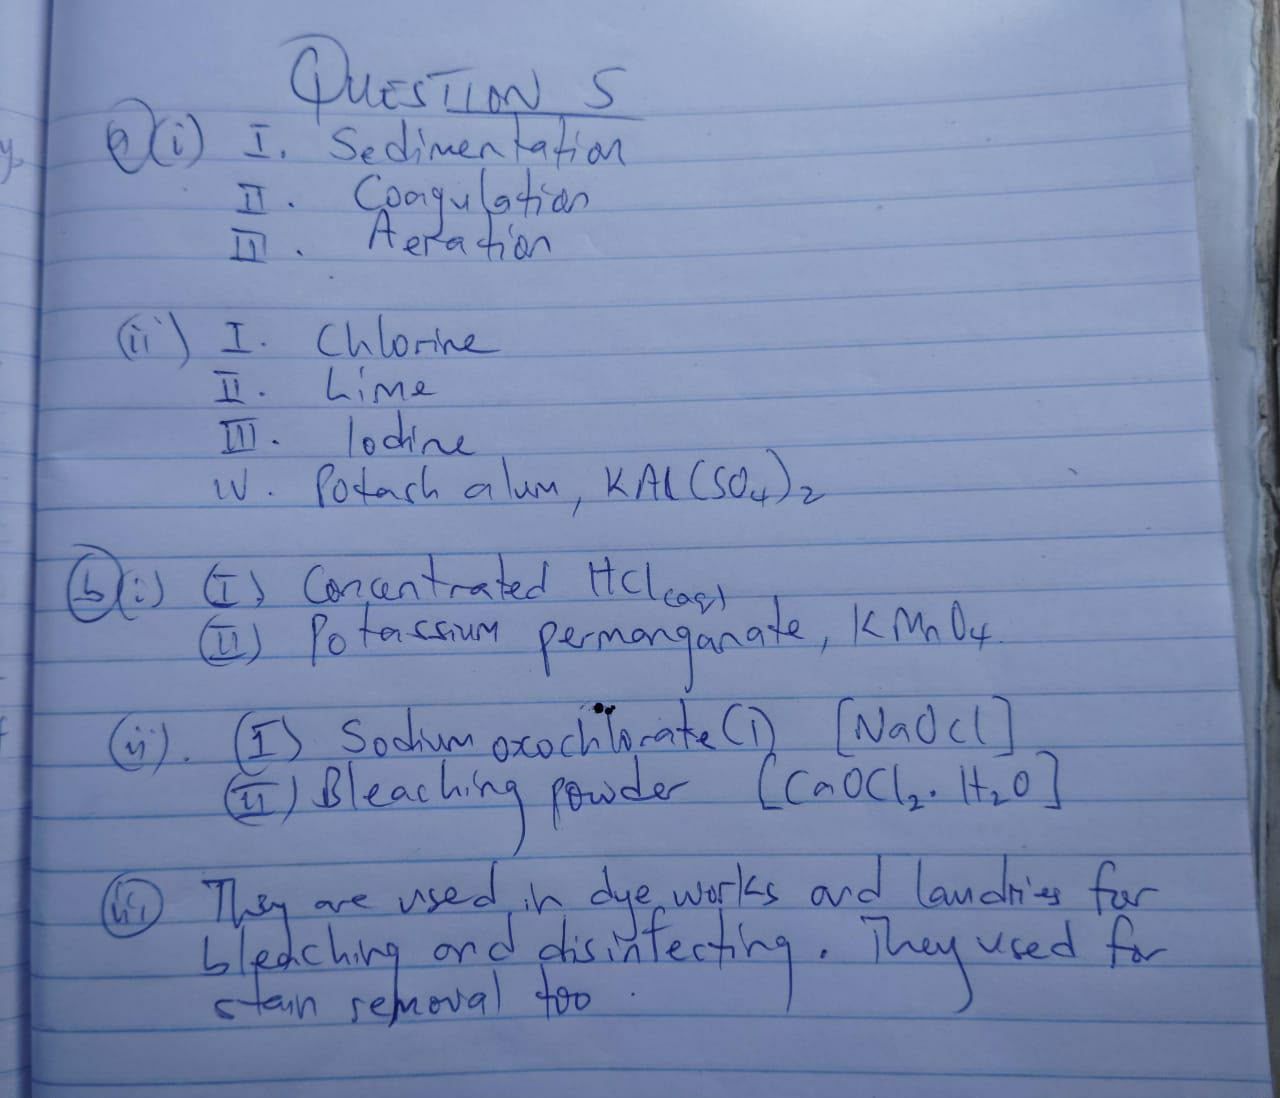 QUESTION 5
a (i) I. Sedimentation
II. Coagulation
III. Aeration
(ii) I. Chlorine
II. Lime
III. Iodine
IV. Potash alum, KAl(SO4)2
b (i) (I) Concentrated HCl(aq)
(II) Potassium permanganate, KMnO4.
(ii). (I) Sodium oxochlorate(I) [NaOCl]
(II) Bleaching powder [CaOCl2.H2O]
(iii) They are used in dye works and landries for
bleaching and disinfecting. They used for
stain removal too.